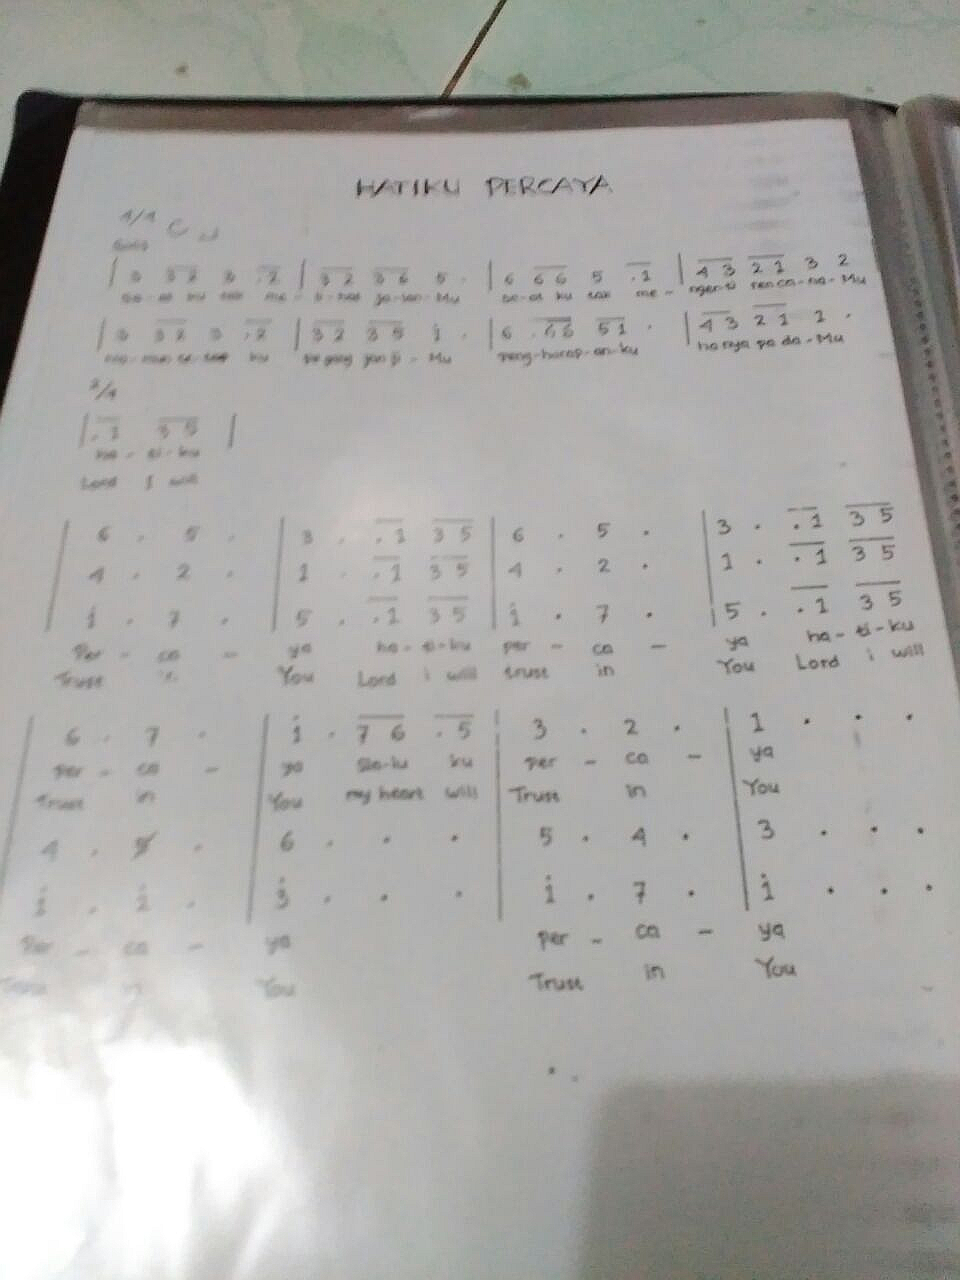 HATIKU PERCAYA
4/4 C
Solo
| 3 3 2 3 . 2 | 3 2 3 6 5 . | 6 6 6 5 . 1 | 4 3 2 1 3 2
Sa-at ku tak me - li-hat ja-lan-Mu Sa-at ku tak me - ngerti rencana-Mu
| 3 3 2 3 . 2 | 3 2 3 5 1 . | 6 . 6 6 5 1 . | 4 3 2 1 1 .
ku pegang janji - Mu Peng-harap-an-ku hanya pada-Mu
2/4
| . 1 3 5 |
ha - ti - ku
Lord I will
| 6 . 5 . | 3 . . 1 3 5 | 6 . 5 . | 3 . . 1 3 5
4 . 2 . 1 . . 1 3 5 4 . 2 . 1 . . 1 3 5
1 . 7 . 5 . . 1 3 5 1 . 7 . 5 . . 1 3 5
Per - ca - ya ha-ti-ku per - ca - ya ha-ti-ku
Trust in You Lord i will trust in You Lord i will
| 6 . 7 . | 1 . 7 6 . 5 | 3 . 2 . | 1 . . .
per - ca - ya Sla-lu ku per - ca - ya
Trust in You my heart will Trust in You
4 . 5 . 6 . . . 5 . 4 . 3 . . .
1 . 2 . 3 . . . 1 . 7 . 1 . . .
Per - ca - ya per - ca - ya
Trust in You Trust in You